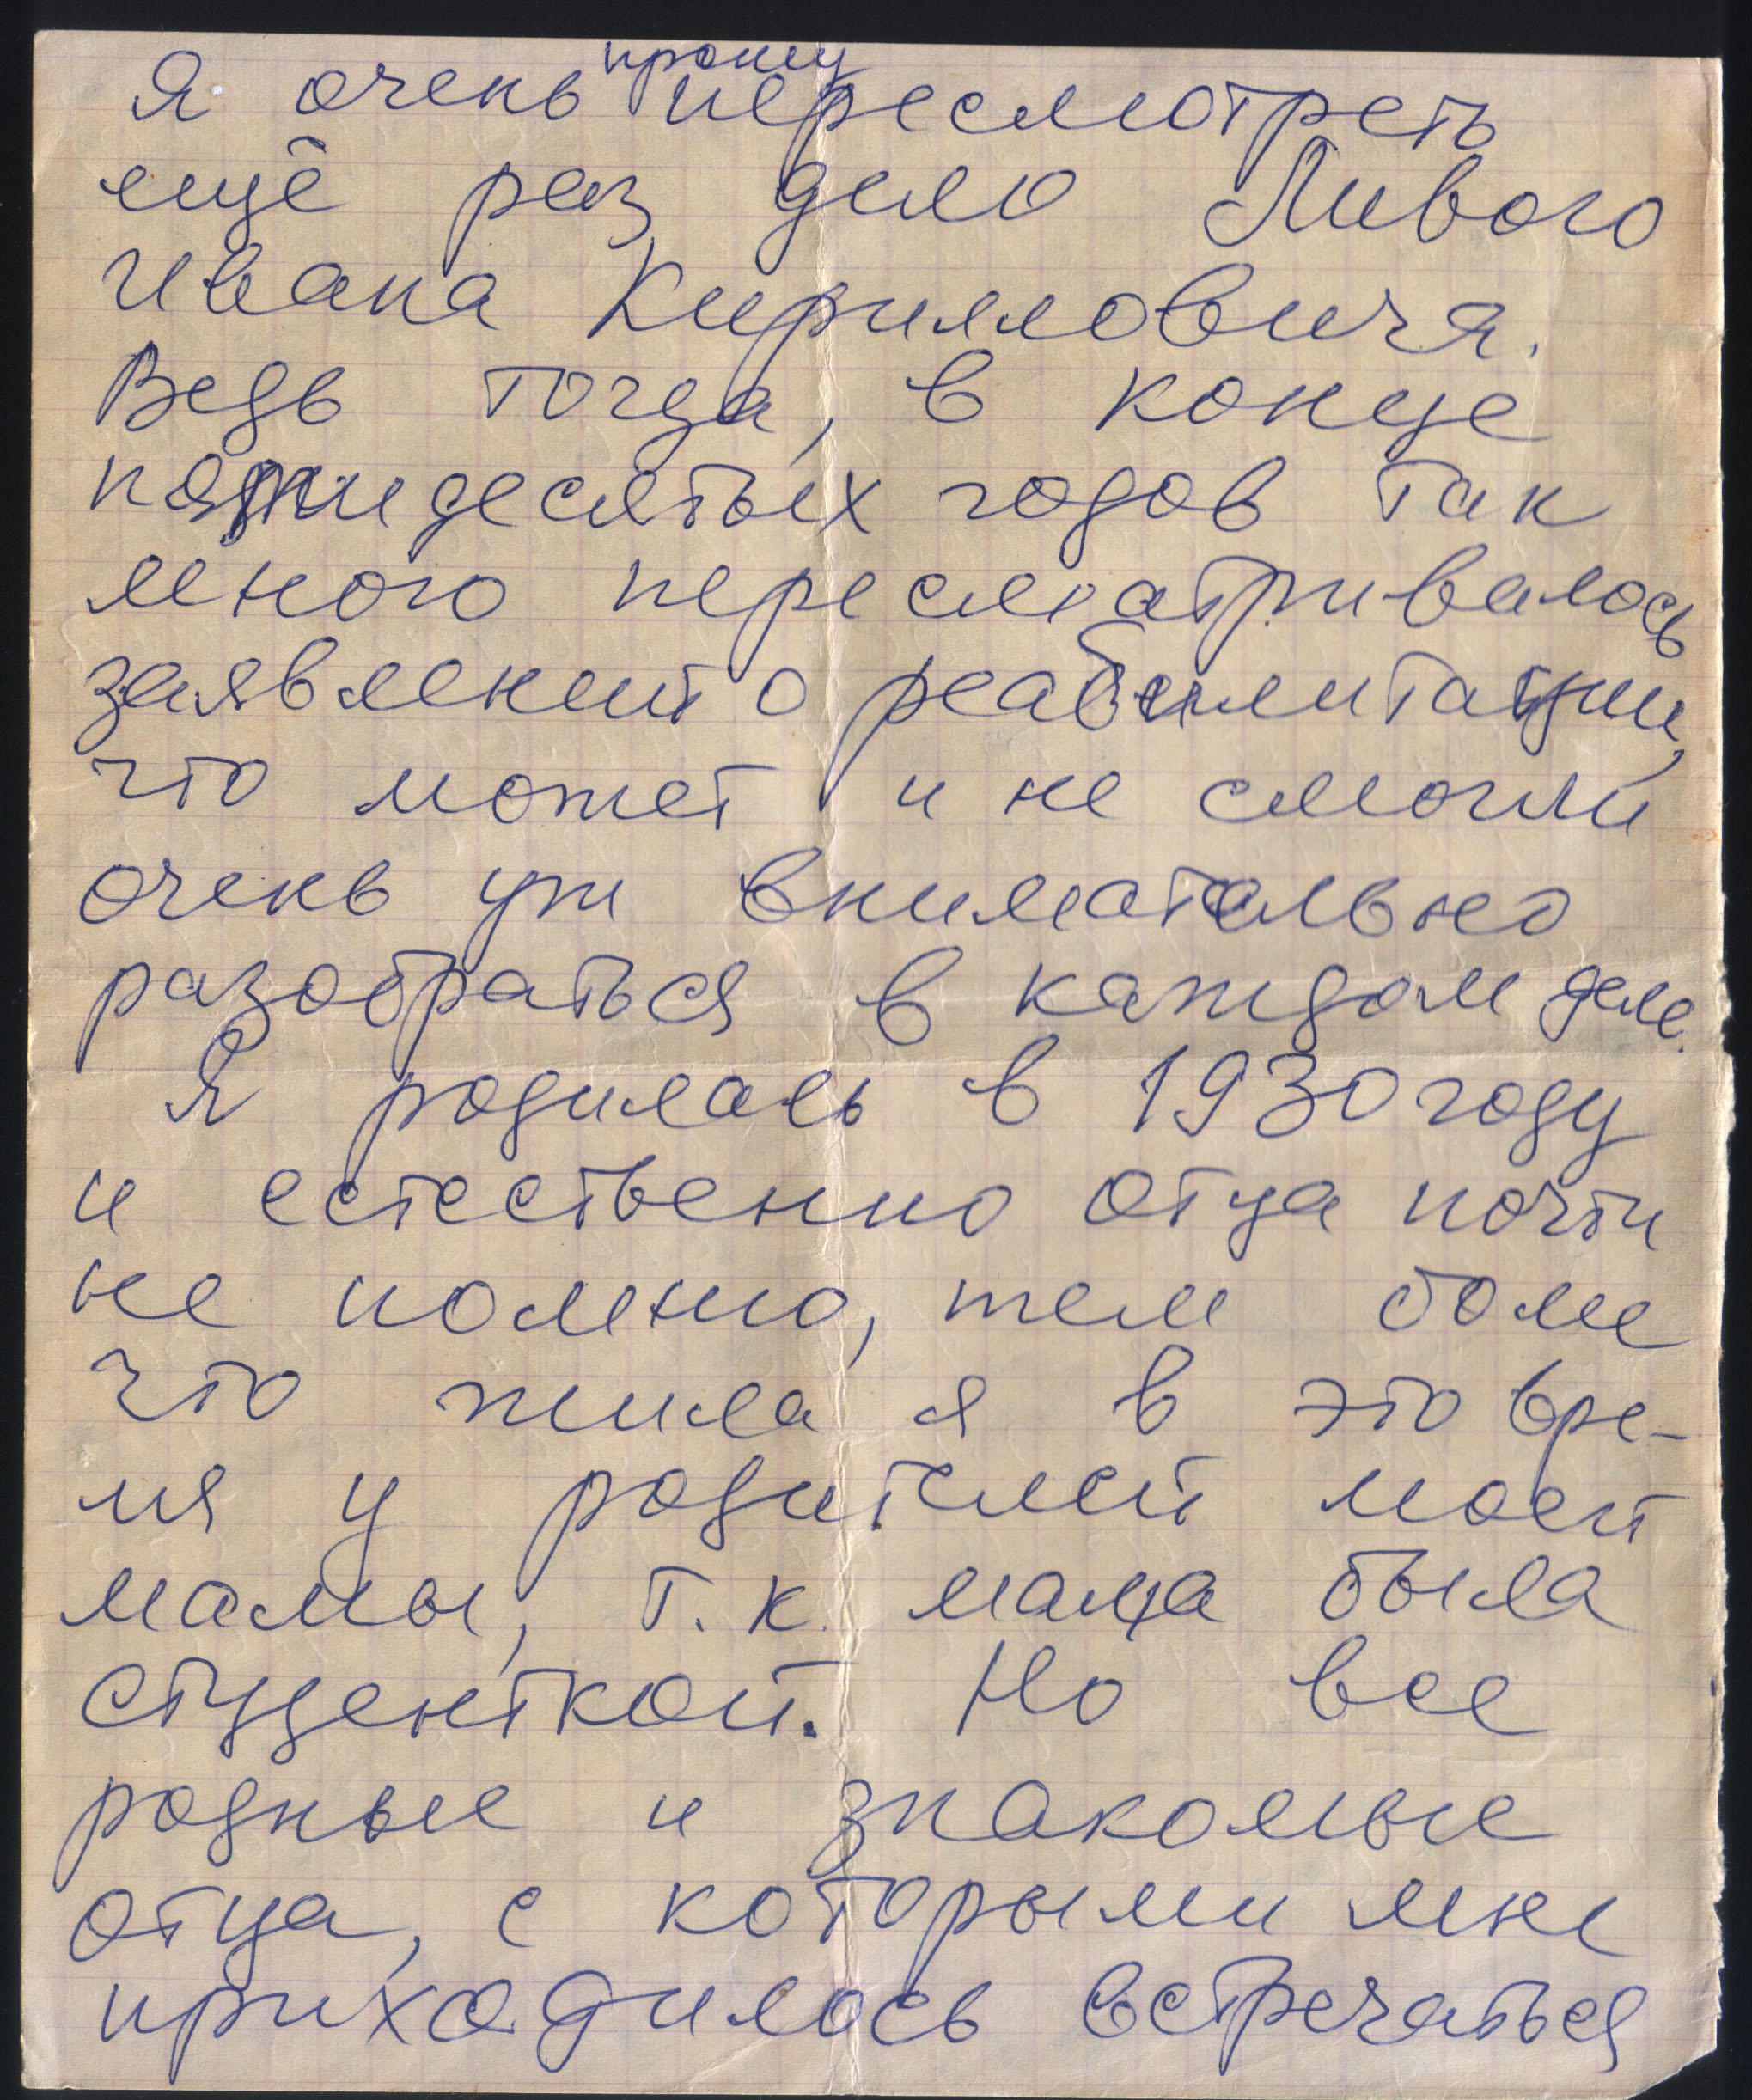 Я очень прошу пересмотреть
ещё раз дело Ливого
Ивана Кирилловича.
Ведь тогда, в конце
пятидесятых годов так
много пересматривалось
заявлений о реабилитации,
что может и не смогли
очень уж внимательно
разобраться в каждом деле.
Я родилась в 1930 году
и естественно отца почти
не помню, тем более
что жила я в это вре-
мя у родителей моей
мамы, т.к. мама была
студенткой. Но все
родные и знакомые
отца, с которыми мне
приходилось встречаться